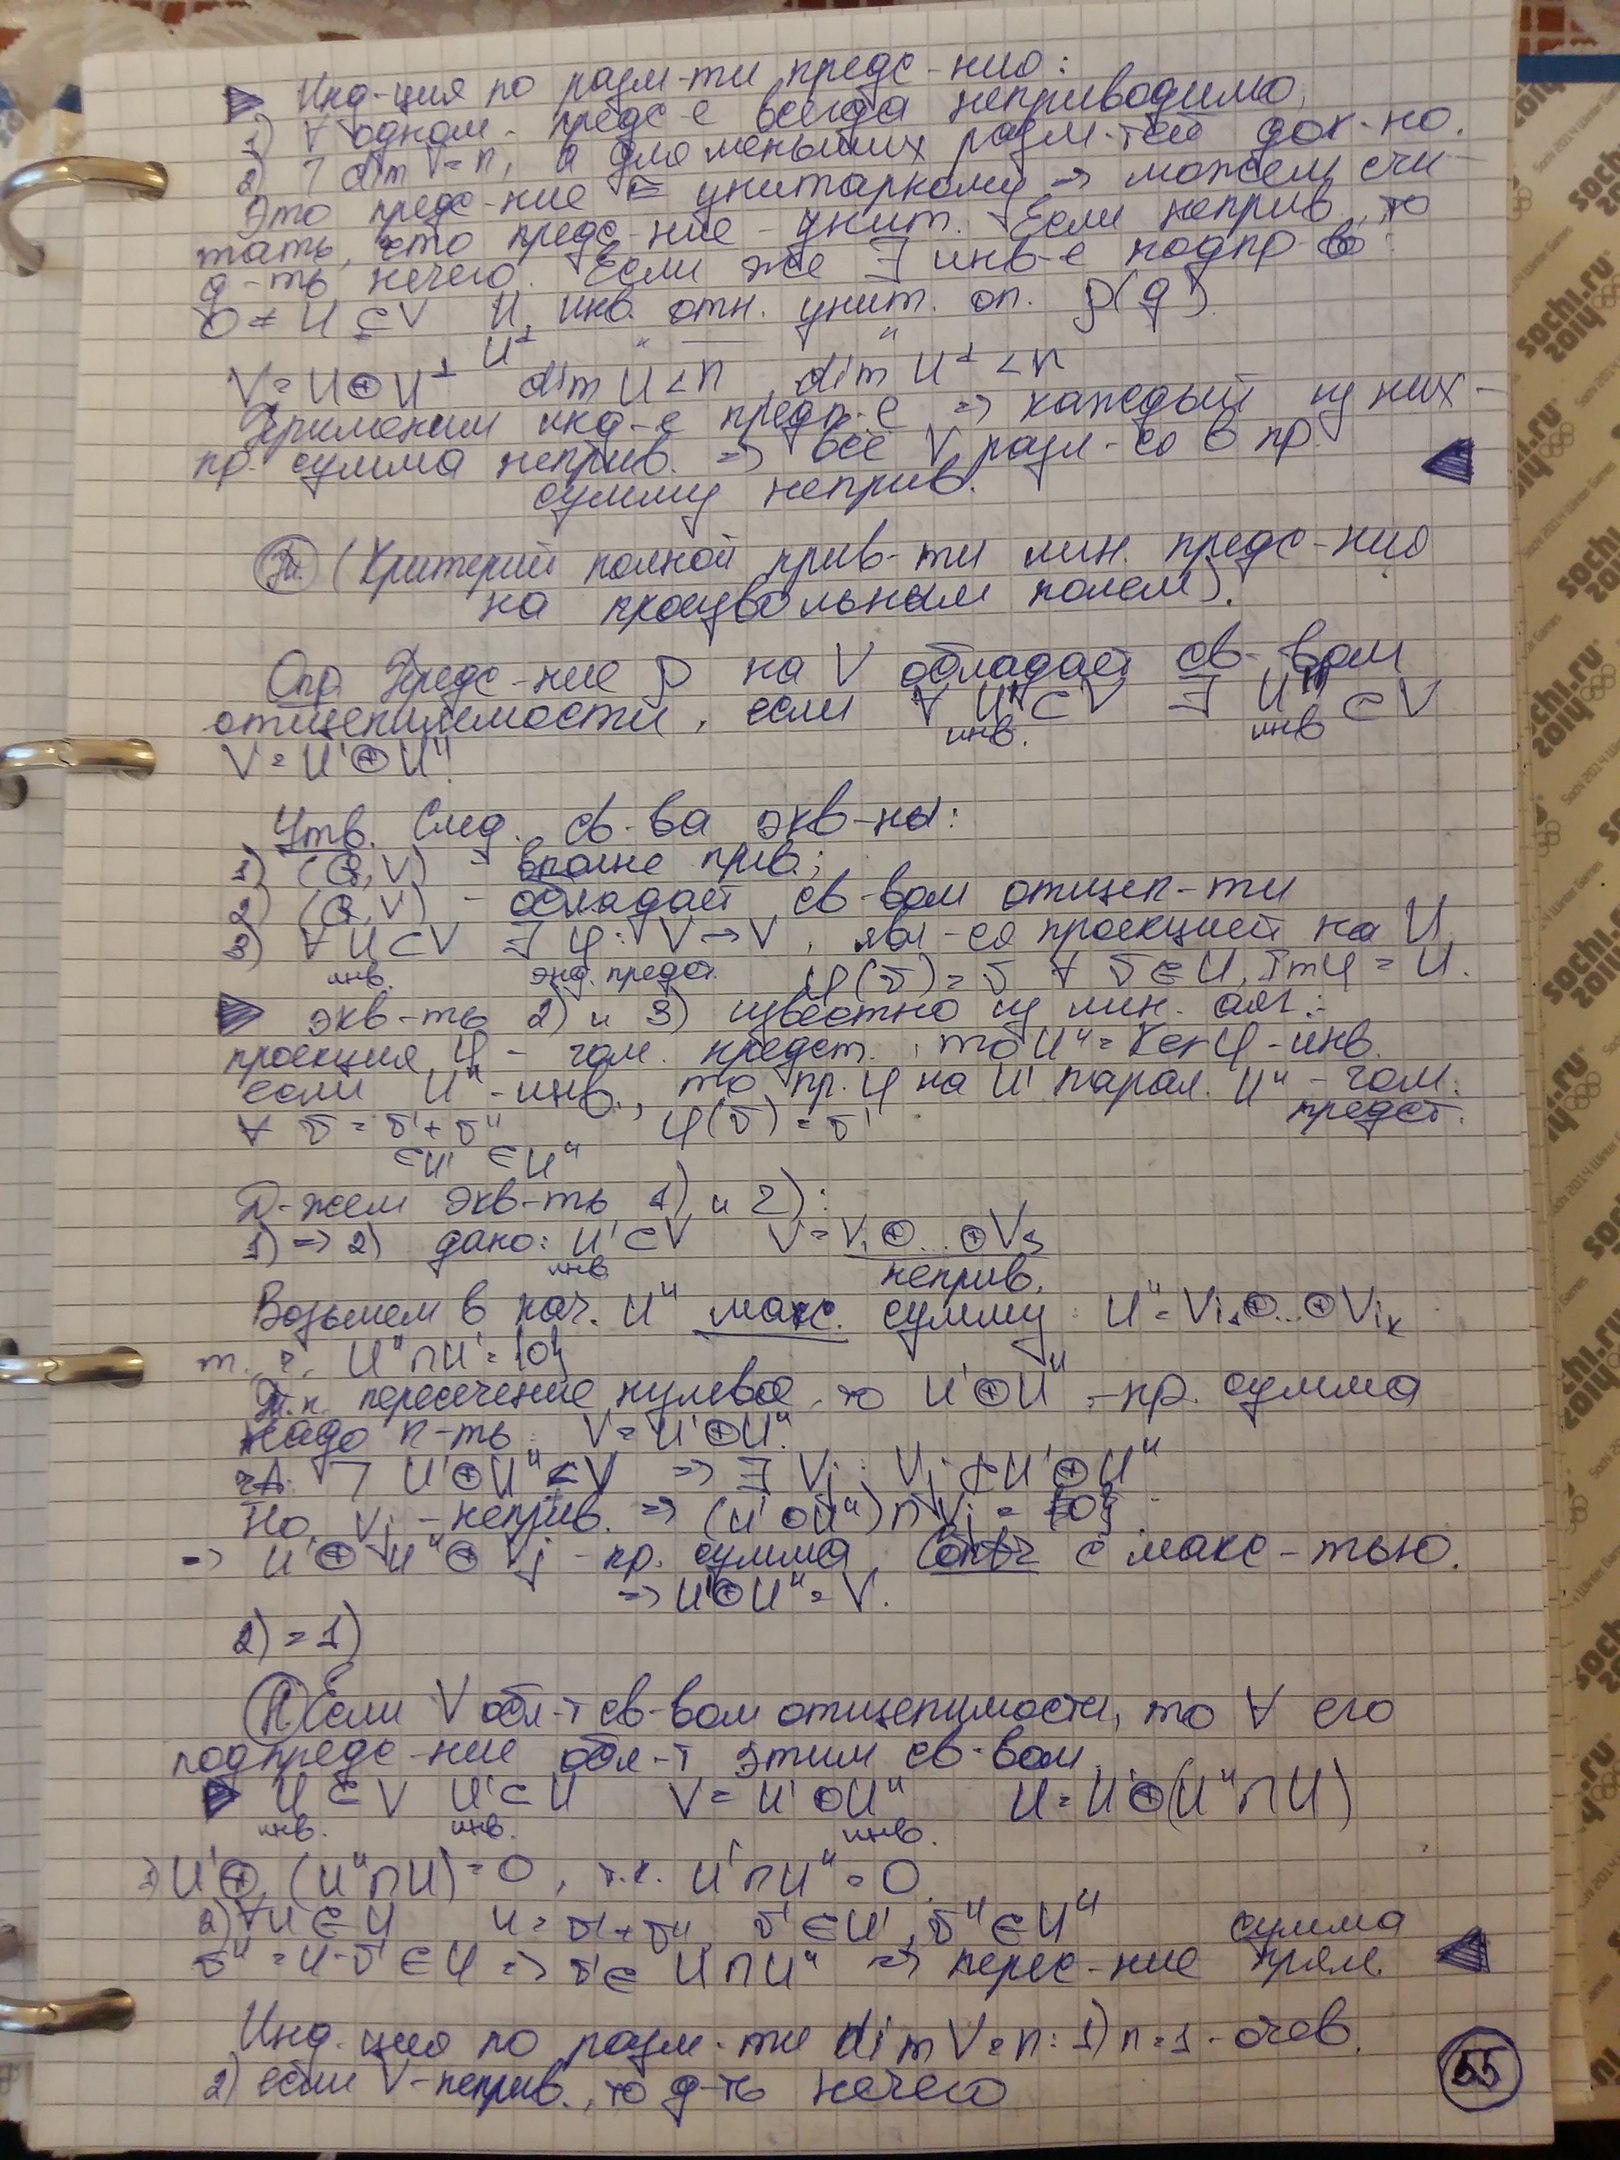 ▶ Инд-ция по разм-ти предс-нию:
1) ∀ одном. предс-е всегда неприводимо.
2) ⅂ dim V = n, а для меньших разм-тей док-но.
Это предс-ние ≅ унитарному ⇒ можем счи-
тать, что предс-ние - унит. Если неприв., то
д-ть нечего. Если же ∃ инв-е подпр-во:
0 ≠ U ⊆ V U, инв. отн. унит. оп. ρ(g)
U⊥ " — "
V = U ⊕ U⊥ dim U < n, dim U⊥ < n
Применим инд-е предп-е ⇒ каждый из них -
пр. сумма неприв. ⇒ всё V разл-ся в пр.
сумму неприв. ◀
Т. (Критерий полной прив-ти лин. предс-нию
на произвольным полем).
Опр. Предс-ние ρ на V обладает св-вом
отщепилемости, если ∀ U' ⊂ V ∃ U'' ⊂ V
инв. инв
V = U' ⊕ U''
Утв. След. св-ва экв-ны:
1) (ρ, V) - вполне прив.;
2) (ρ, V) - обладает св-вом отщеп-ти
3) ∀ U ⊂ V ∃ φ: V → V, явл-ся проекцией на U,
инв. энд. предст. φ(v) = v ∀ v ∈ U, Im φ = U.
▶ экв-ть 2) и 3) известно из лин. алг.:
проекция φ - гом. предст., то U'' = Ker φ - инв.
если U'' - инв., то пр. φ на U' парал. U'' - гом.
предст.
∀ v = v' + v'' φ(v) = v'
∈U' ∈U''
Д-жем экв-ть 1) и 2):
1) ⇒ 2) дано: U' ⊂ V V = V₁ ⊕ ... ⊕ Vs
инв неприв.
Возьмем в кач. U'' макс. сумму: U'' = Vi₁ ⊕ ... ⊕ Viₖ
т. ч. U'' ∩ U' = {0}
Т.к. пересечение нулевое, то U' ⊕ U'' - пр. сумма
надо п-ть V = U' ⊕ U''.
⅂ U' ⊕ U'' ⊊ V ⇒ ∃ Vj: Vj ⊄ U' ⊕ U''
Но, Vj - неприв. ⇒ (U' ⊕ U'') ∩ Vj = {0}
⇒ U' ⊕ U'' ⊕ Vj - пр. сумма с макс-тью.
⇒ U' ⊕ U'' = V.
2) = 1)
Л Если V обл-т св-вом отщепимости, то ∀ его
подпредс-ние обл-т этим св-вом.
▶ U ⊂ V U' ⊂ U V = U' ⊕ U'' U = U' ⊕ (U'' ∩ U)
инв. инв. инв.
1) U' ⊕ (U'' ∩ U) = 0, т.к. U' ∩ U'' = 0.
2) ∀ u ∈ U u = v' + v'', v' ∈ U', v'' ∈ U'' сумма
v'' = u - v' ∈ U ⇒ v' ∈ U ∩ U'' ⇒ перес-ние прям. ◀
Инд-ция по разм-ти dim V = n: 1) n = 1 - очев.
2) если V - неприв., то д-ть нечего
55
sochi.ru
2014
Sochi 2014 Winter Games